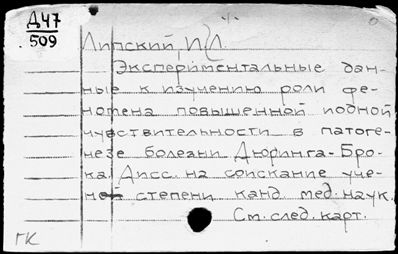 Д47
509
Липский, И.Л.
Экспериментальные дан-
ные к изучению роли фе-
номена повышенной иодной
чувствительности в патоге-
незе болезни Дюринга-Бро-
ка. Дисс. на соискание уче-
ной степени канд. мед. наук.
См. след. карт.
ГК